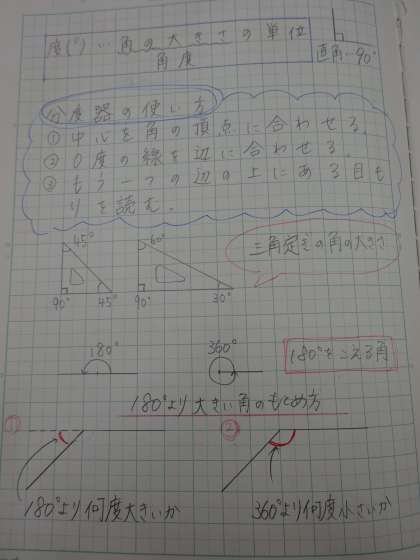 度(°)…角の大きさの単位
角度
直角…90°
分度器の使い方
①中心を角の頂点に合わせる。
②0度の線を辺に合わせる。
③もう一つの辺の上にある目も
りを読む。
45°
90° 45°
60°
90° 30°
三角定ぎの角の大きさ
180°
360°
180°をこえる角
180°より大きい角のもとめ方
①
②
180°より何度大きいか
360°より何度小さいか